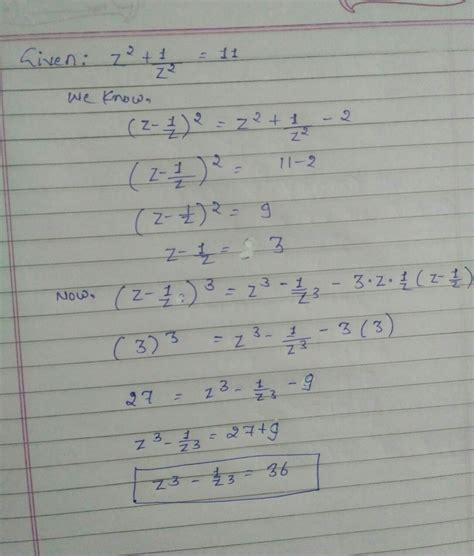 Given: z² + 1/z² = 11
We know.
(z - 1/z)² = z² + 1/z² - 2
(z - 1/z)² = 11-2
(z - 1/z)² = 9
z - 1/z = 3
Now. (z - 1/z)³ = z³ - 1/z³ - 3·z·1/z (z - 1/z)
(3)³ = z³ - 1/z³ - 3(3)
27 = z³ - 1/z³ - 9
z³ - 1/z³ = 27+9
z³ - 1/z³ = 36